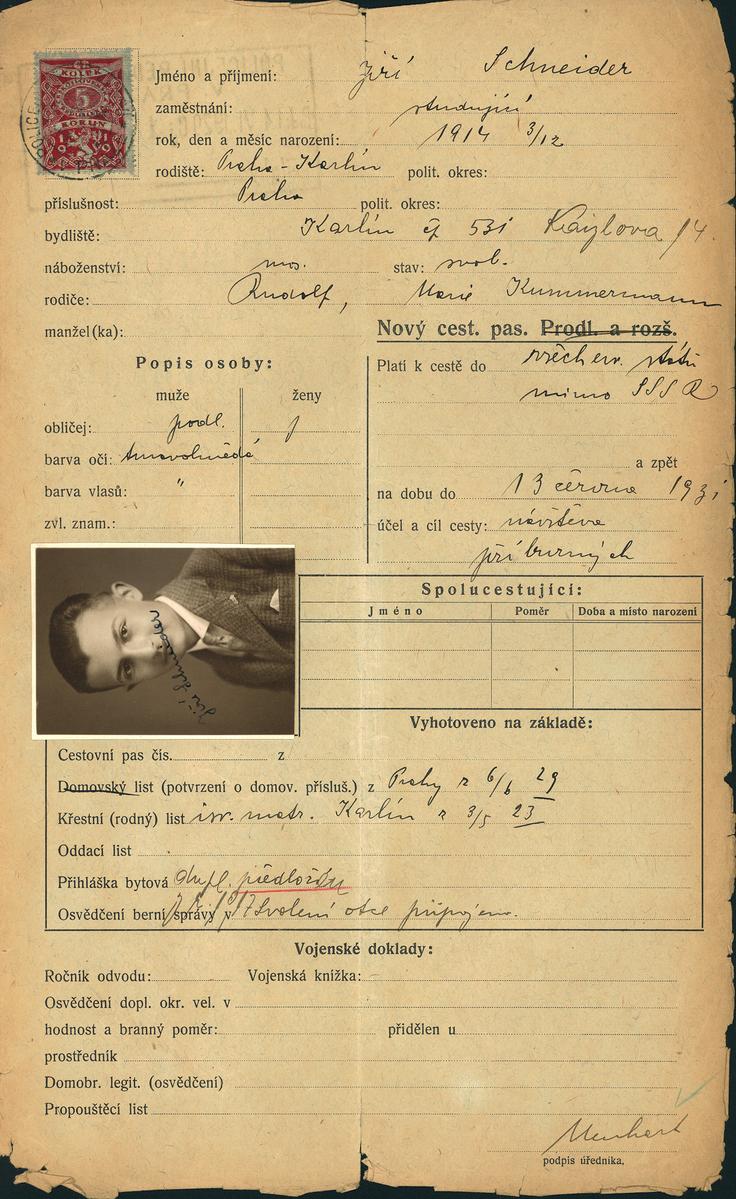 KOLEK
5
KORUN
1919
Jméno a příjmení: Jiří Schneider
zaměstnání: studující
rok, den a měsíc narození: 1914 3/12
rodiště: Praha-Karlín polit. okres:
příslušnost: Praha polit. okres:
bydliště: Karlín čp 531 Kaizlova 14.
náboženství: mos. stav: svob.
rodiče: Rudolf, Marie Kummermann
manžel(ka):
Nový cest. pas. Prodl. a rozš.
Popis osoby:
muže ženy
obličej: podl.
barva očí: tmavohnědá
barva vlasů: "
zvl. znam.:
Platí k cestě do všech evr. států
mimo SSSR
a zpět
na dobu do 13 června 1931
účel a cíl cesty: návštěva
příbuzných
Jiří Schneider
Spolucestující:
Jméno Poměr Doba a místo narození
Vyhotoveno na základě:
Cestovní pas čís. z
Domovský list (potvrzení o domov. přísluš.) z Prahy z 6/6 29
Křestní (rodný) list isr. matr. Karlín z 3/5 23
Oddací list
Přihláška bytová dupl. předložen
Osvědčení berní správy v Svolení otce připojeno.
Vojenské doklady:
Ročník odvodu: Vojenská knížka:
Osvědčení dopl. okr. vel. v
hodnost a branný poměr: přidělen u
prostředník
Domobr. legit. (osvědčení)
Propouštěcí list
podpis úředníka.